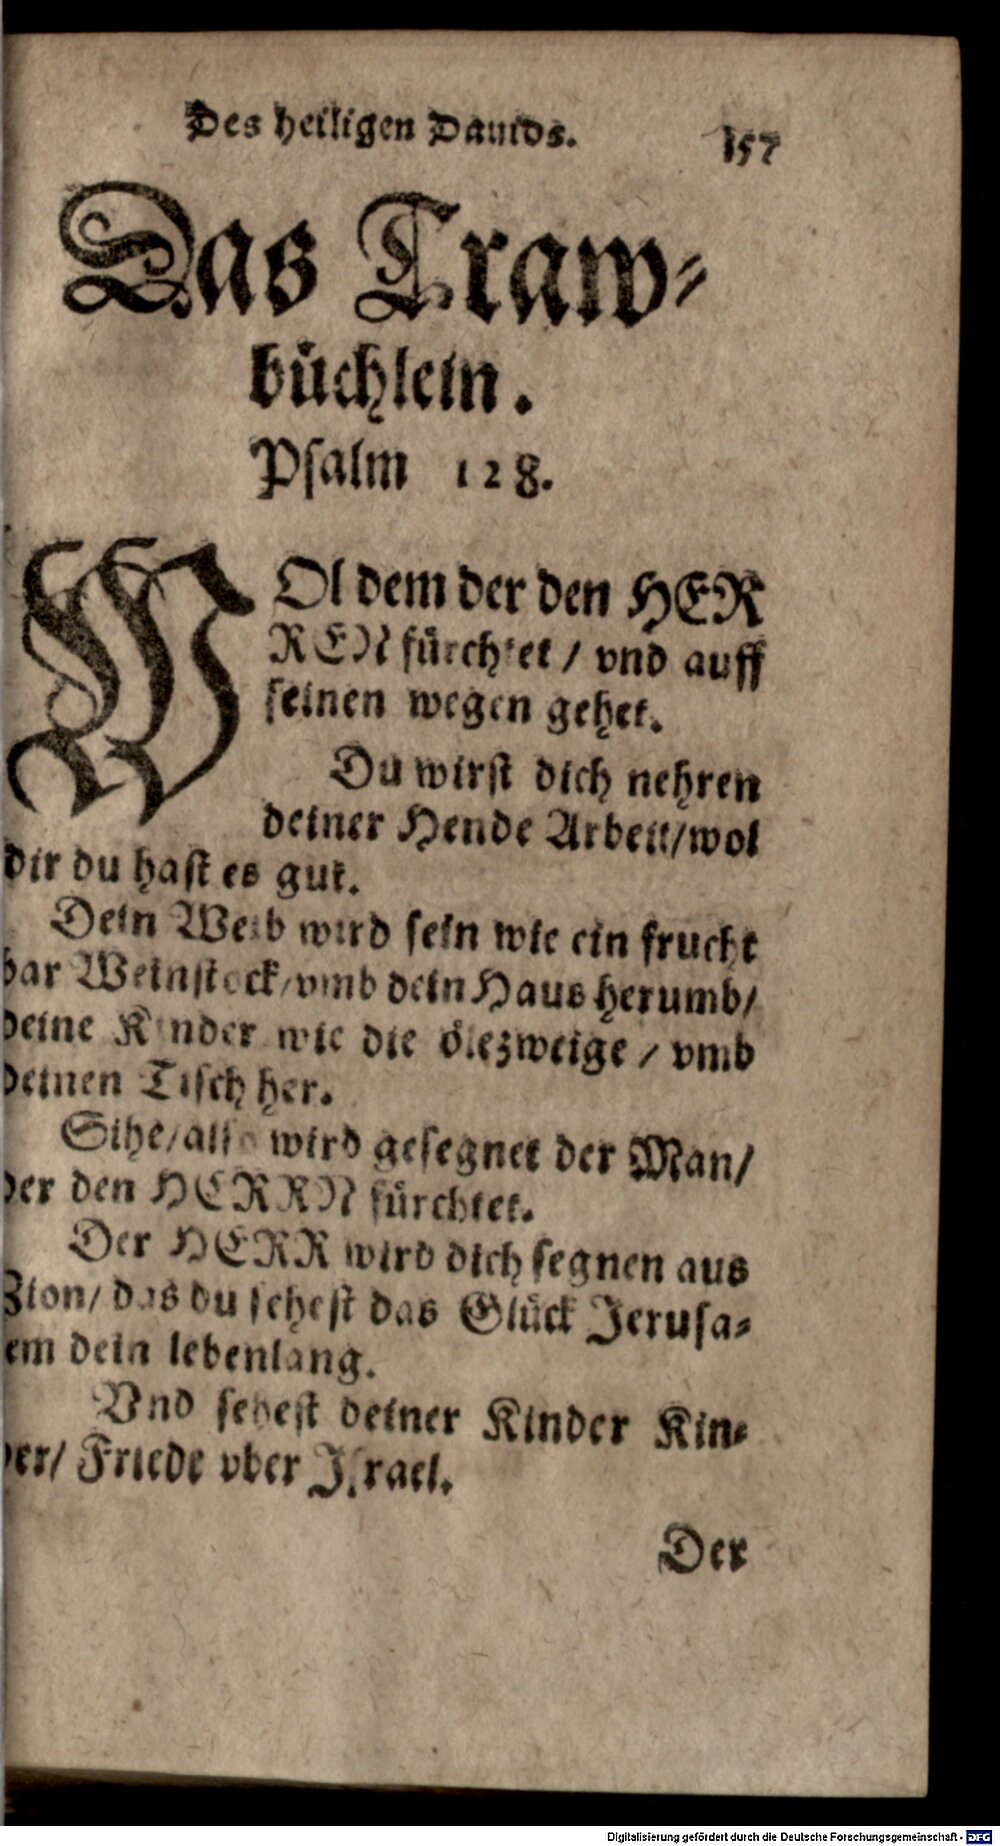 Des heiligen Dauids. 157
Das Traw⸗
büchlein.
Psalm 128.
WOl dem der den HER
REN fürchtet / vnd auff
seinen wegen gehet.
Du wirst dich nehren
deiner Hende Arbeit/wol
dir du hast es gut.
Dein Weib wird sein wie ein frucht
bar Weinstock/vmb dein Haus herumb/
deine Kinder wie die ölezweige / vmb
deinen Tisch her.
Sihe/also wird gesegnet der Man/
der den HERRN fürchtet.
Der HERR wird dich segnen aus
Zion/ das du sehest das Glück Jerusa⸗
em dein lebenlang.
Vnd sehest deiner Kinder Kin⸗
der/ Friede vber Israel.
Der
Digitalisierung gefördert durch die Deutsche Forschungsgemeinschaft - DFG